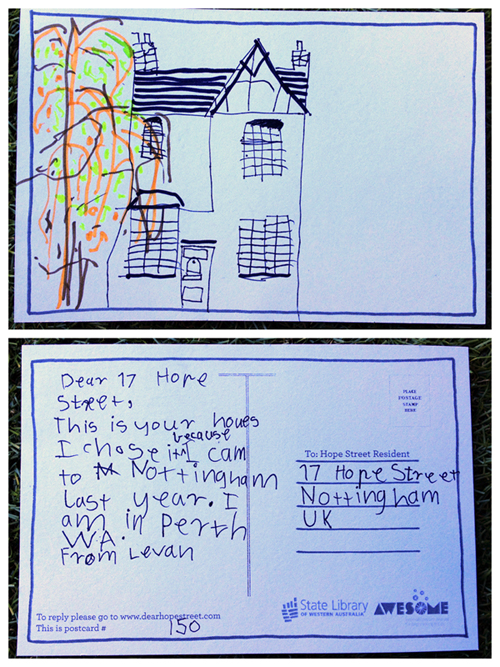 Dear 17 Hope
Street,
This is your houes
because
I chose it I cam
to Nottingham
last year. I
am in Perth
WA.
From Levan
To reply please go to www.dearhopestreet.com
This is postcard # 150
PLACE
POSTAGE
STAMP
HERE
To: Hope Street Resident
17 Hope Street
Nottingham
UK
State Library
OF WESTERN AUSTRALIA
AWESOME